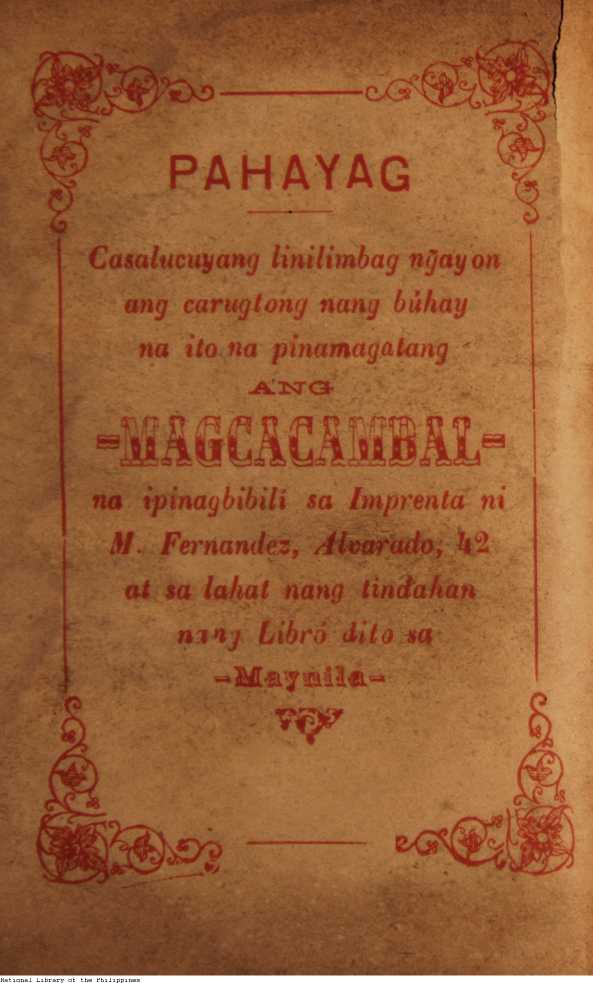 PAHAYAG
Casalucuyang linilimbag ng̃ayon
ang carugtong nang búhay
na ito na pinamagatang
ANG
-MAGCACAMBAL-
na ipinagbibili sa Imprenta ni
M. Fernandez, Alvarado, 42
at sa lahat nang tindahan
nang Libró dito sa
-Maynila-
National Library of the Philippines